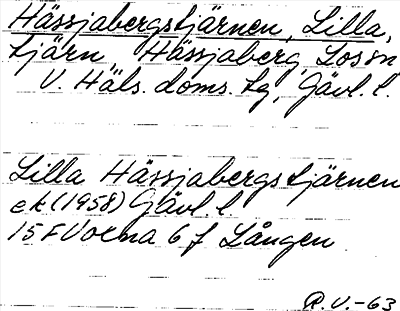 Hässjabergstjärnen, Lilla,
tjärn, Hässjaberg, Los sn
V. Häls. doms. tg, Gävl. l.
Lilla Hässjabergstjärnen
ek (1958) Gävl. l.
15 F Voxna 6 f Lången
R.V.-63